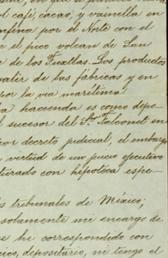 el café, cacao, y vainilla en
confina por el Norte con el
el pico volcan de San
de los Tuxtlas. Los productos
valer de las fabricas y en
por la via marítima.
hacienda es como depo
el sucesor del Sr. Falconet en
por decreto judicial, el embargo
virtud de un juicio ejecutivo
tirado con hipoteca espe
tribunales de México;
solamente mi encargo de
he correspondido con
depositario, ni tengo el